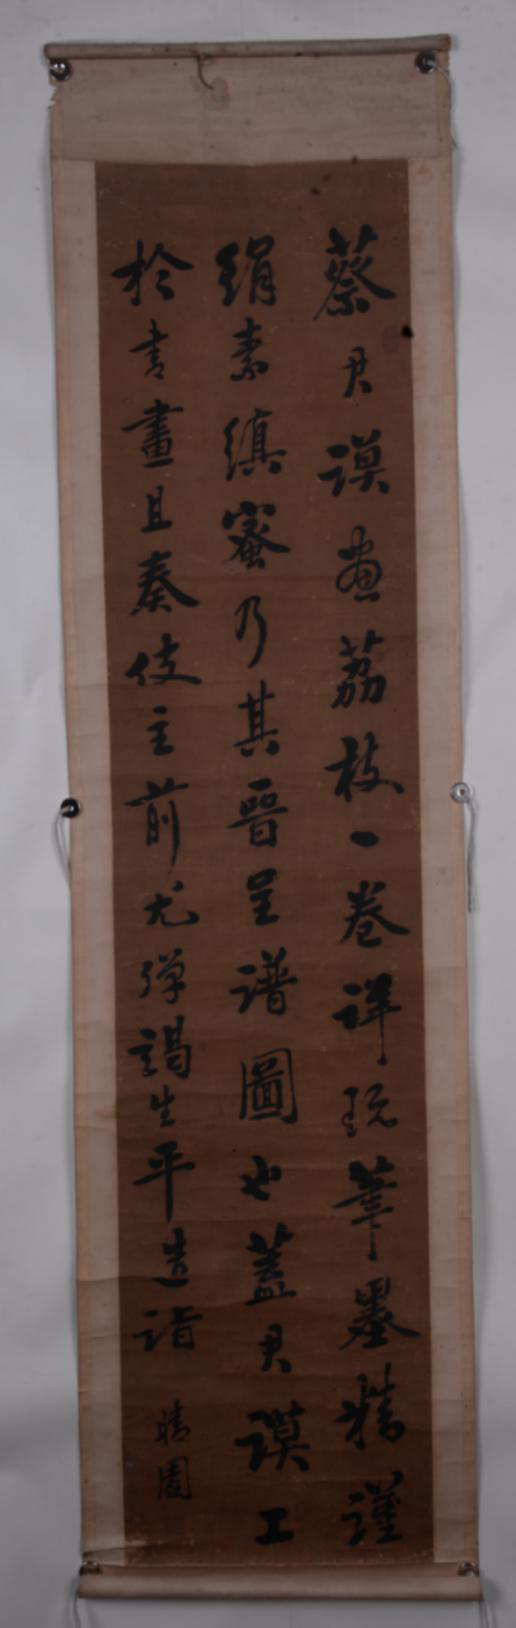 蔡君謨畫荔枝一卷詳玩筆墨精謹
絹素縝密乃其晉呈譜圖也蓋君謨工
於書畫且奏伎主前尤彈謁生平造詣
晴園